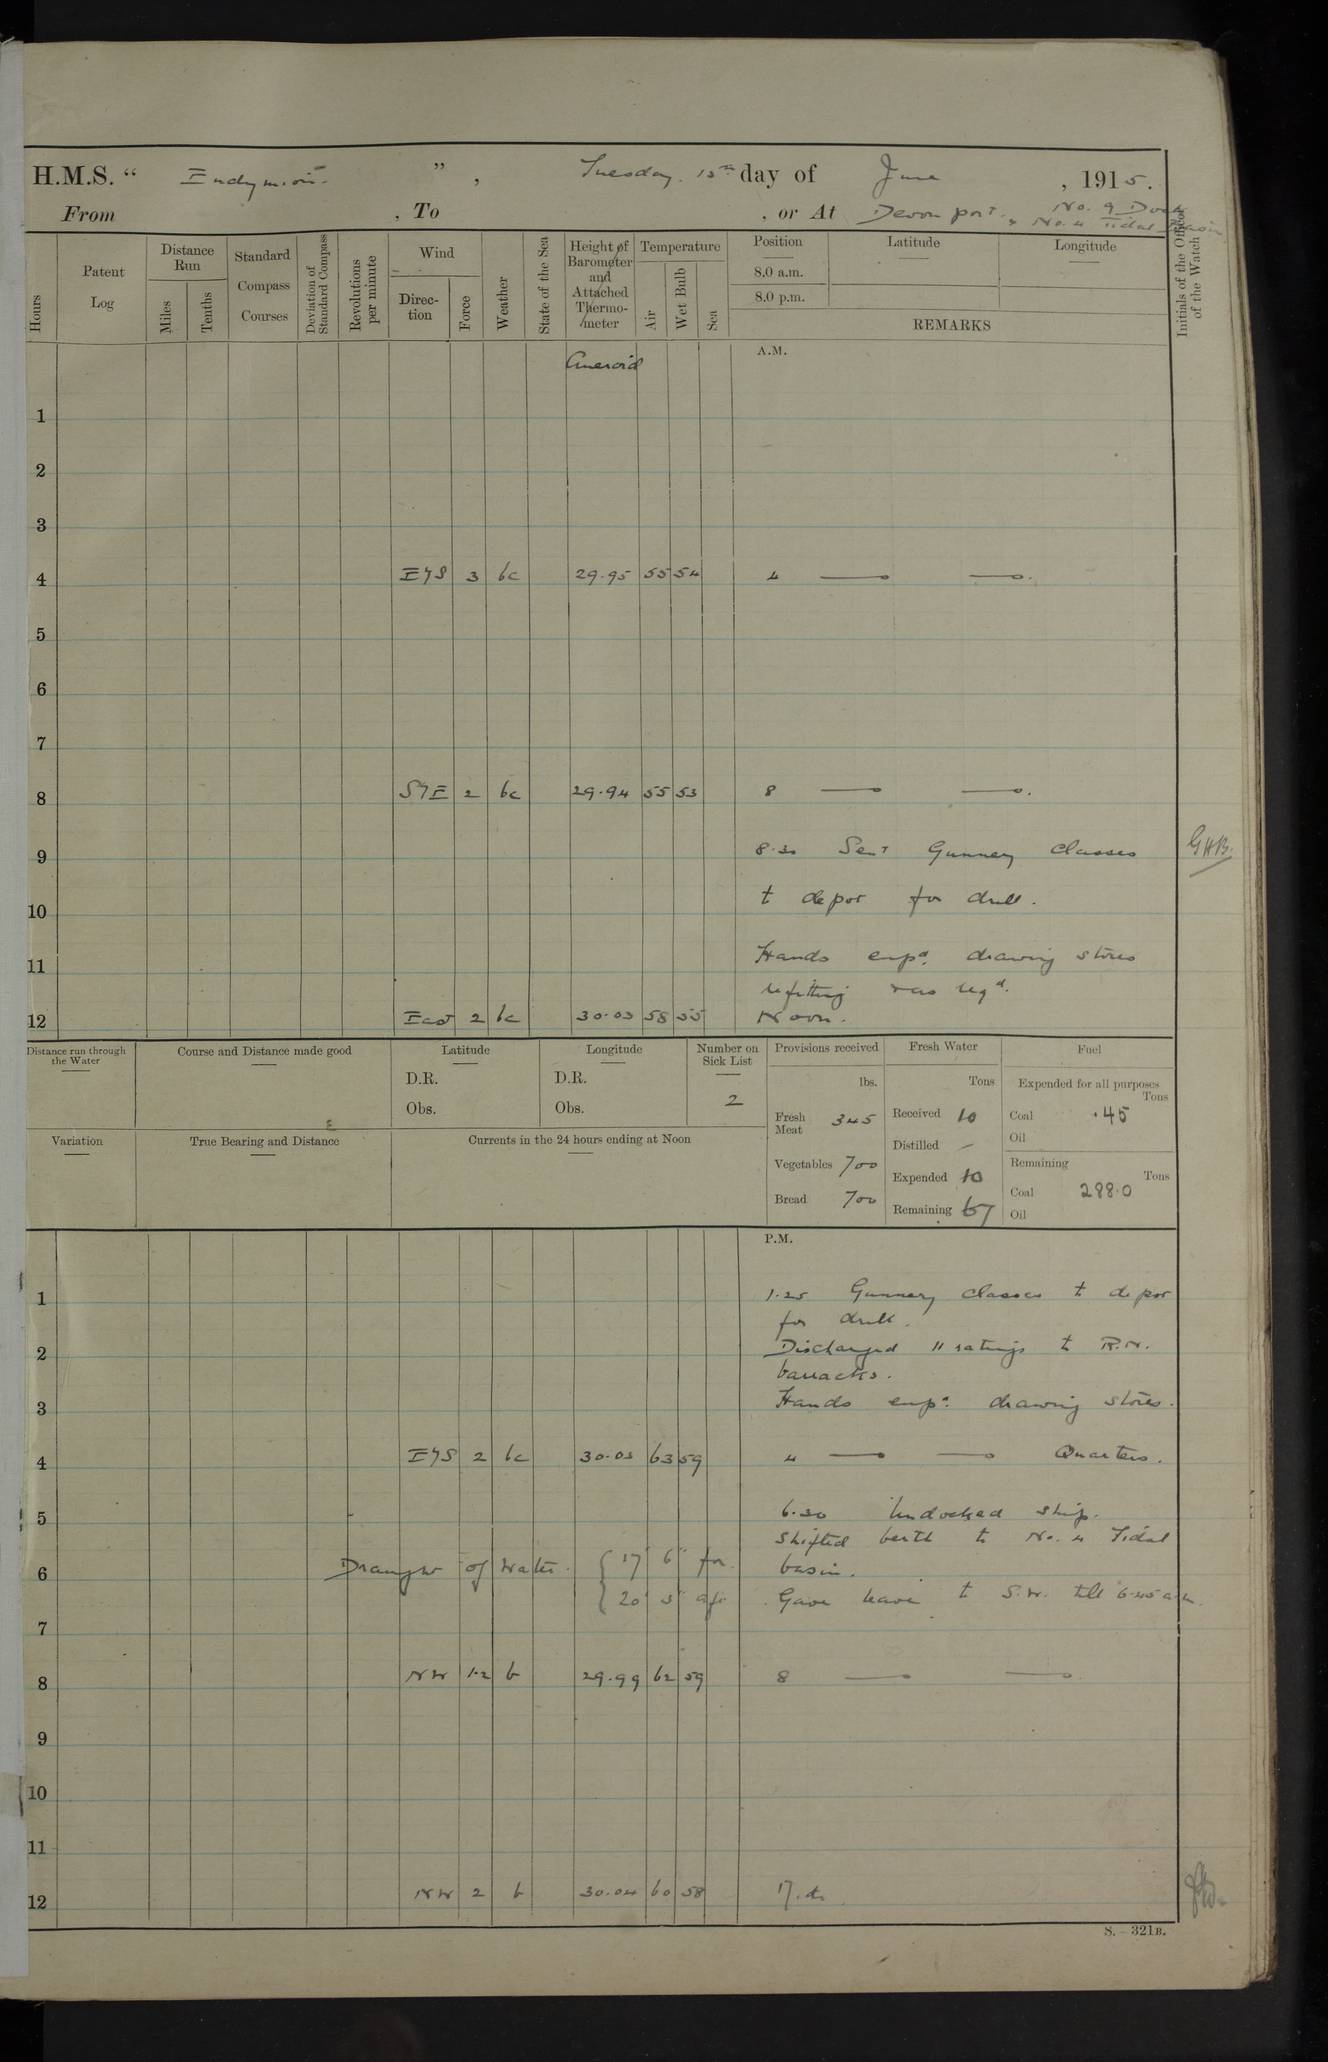 H.M.S. “ Endymion ” , Tuesday. 15th day of June , 1915.
From , To , or At Devonport. No. 9 Dock
& No. 4 Tidal Basin
Hours
Patent Log
Distance Run
Miles
Tenths
Standard Compass Courses
Deviation of Standard Compass
Revolutions per minute
Wind
Direc- tion
Force
Weather
State of the Sea
Height of Barometer and Attached Thermo- meter
Temperature
Air
Wet Bulb
Sea
Position
8.0 a.m.
8.0 p.m.
Latitude
Longitude
REMARKS
Initials of the Officer of the Watch
Aneroid
A.M.
1
2
3
4 EyS 3 bc 29.95 55 54 4
5
6
7
8 SyE 2 bc 29.94 55 53 8
8.30 Sent Gunnery Classes G.H.B.
9
to depot for drill.
10
Hands empd. drawing stores
11
refitting &as reqd.
12 East 2 bc 30.03 58 55 Noon.
Distance run through the Water
Course and Distance made good
Latitude
D.R.
Obs.
Longitude
D.R.
Obs.
Number on Sick List
2
Provisions received
lbs.
Fresh Meat 345
Vegetables 700
Bread 700
Fresh Water
Tons
Received 10
Distilled –
Expended 10
Remaining 67
Fuel
Expended for all purposes
Tons
Coal .45
Oil
Remaining
Tons
Coal 288.0
Oil
Variation
True Bearing and Distance
Currents in the 24 hours ending at Noon
P.M.
1 1.25 Gunnery Classes to depot
for drill.
2 Discharged 11 ratings to R.N.
barracks.
3 Hands empd. drawing stores.
4 EyS 2 bc 30.03 63 59 4 Quarters.
5 6.30 Undocked ship.
Shifted berth to No. 4 Tidal
6 Draught of Water { 17' 6" for. basin.
{ 20' 3" aft Gave leave to S.W. till 6.45 a.m.
7
8 NW 1.2 b 29.99 62 59 8
9
10
11
12 NW 2 b 30.04 60 58
S. – 321B.